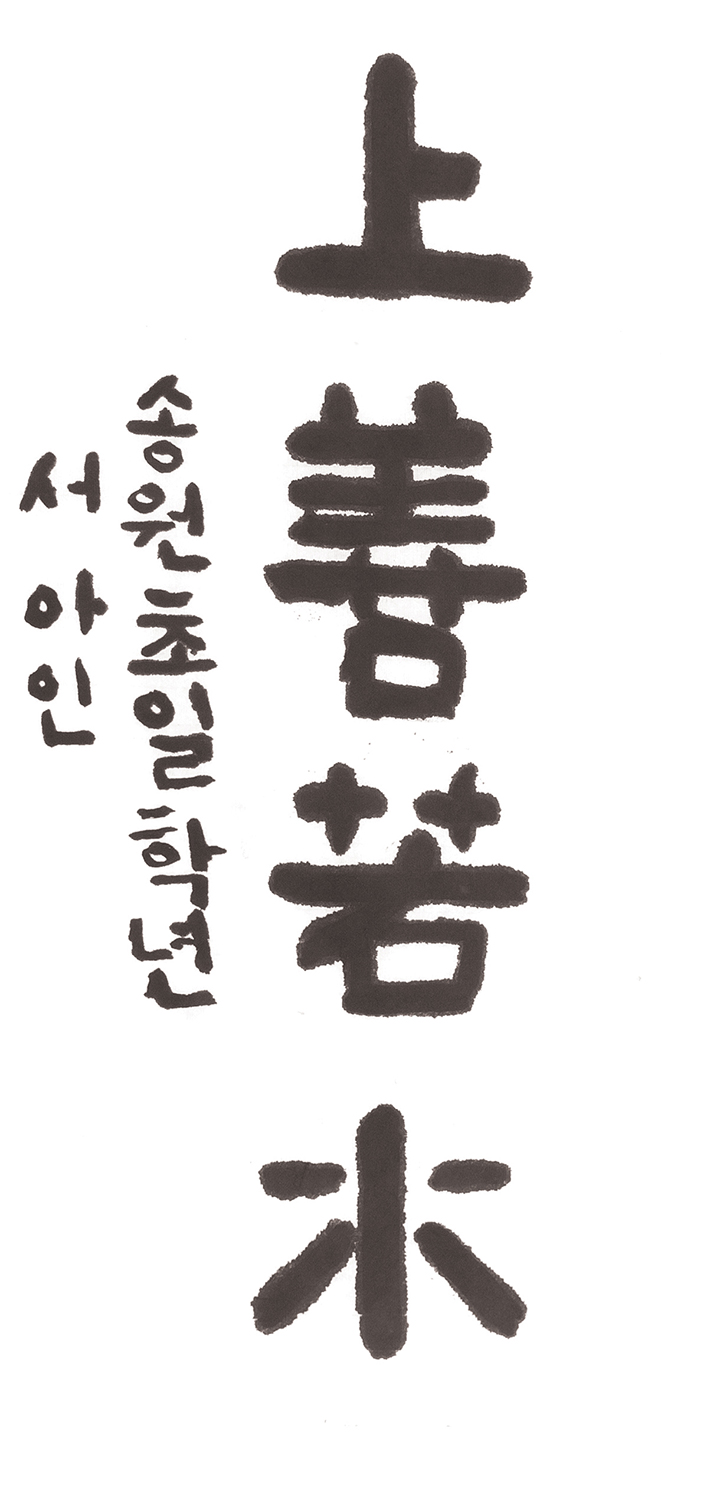 上善若水
송원초 일학년
서아인